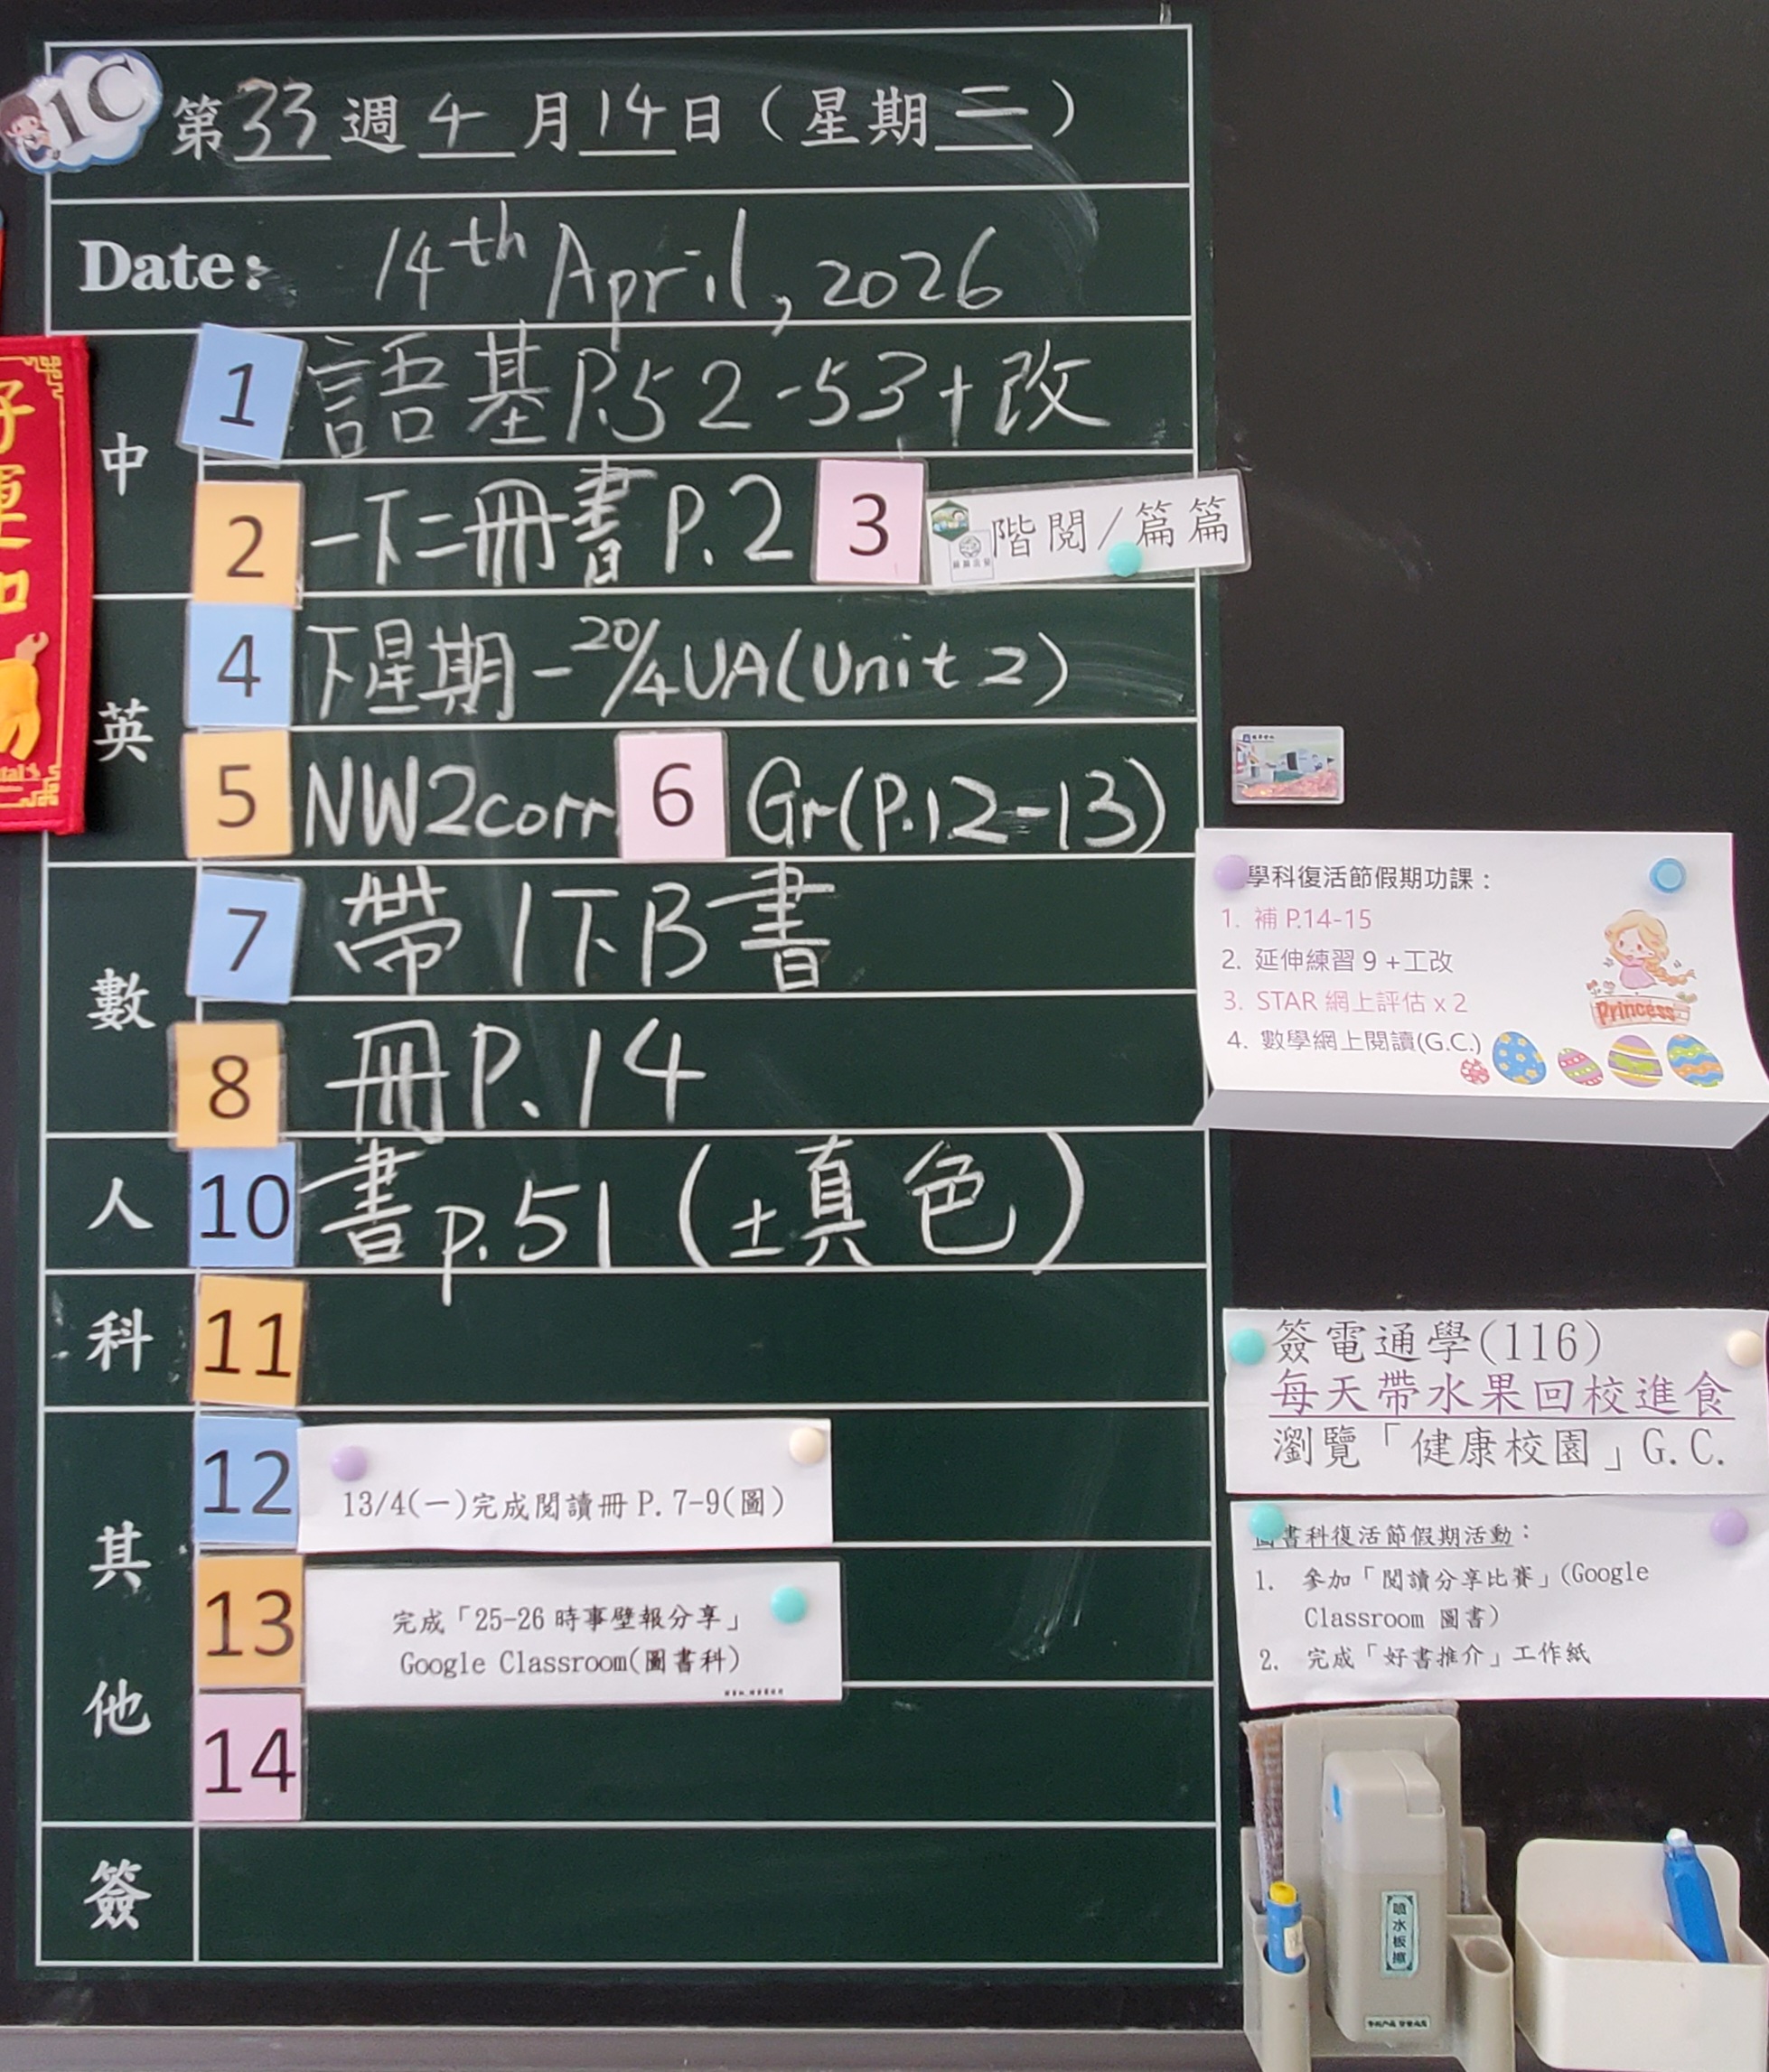 1C
第33週4月14日(星期二)
Date: 14th April, 2026
中
1 語基P.52-53+改
2 一下二冊書P.2 3 階閱/篇篇
英
4 下星期一20/4UA(Unit 2)
5 NW2corr 6 Gr(P.12-13)
數
7 帶1下B書
8 冊P.14
人
10 書p.51(±真色)
科
11
其他
12 13/4(一)完成閱讀冊 P.7-9(圖)
13 完成「25-26 時事壁報分享」
Google Classroom(圖書科)
14
簽
學科復活節假期功課:
1. 補 P.14-15
2. 延伸練習 9 +工改
3. STAR 網上評估 x 2
4. 數學網上閱讀(G.C.)
Princess
簽電通學(116)
每天帶水果回校進食
瀏覽「健康校園」G.C.
圖書科復活節假期活動:
1. 參加「閱讀分享比賽」(Google
Classroom 圖書)
2. 完成「好書推介」工作紙
噴水板擦